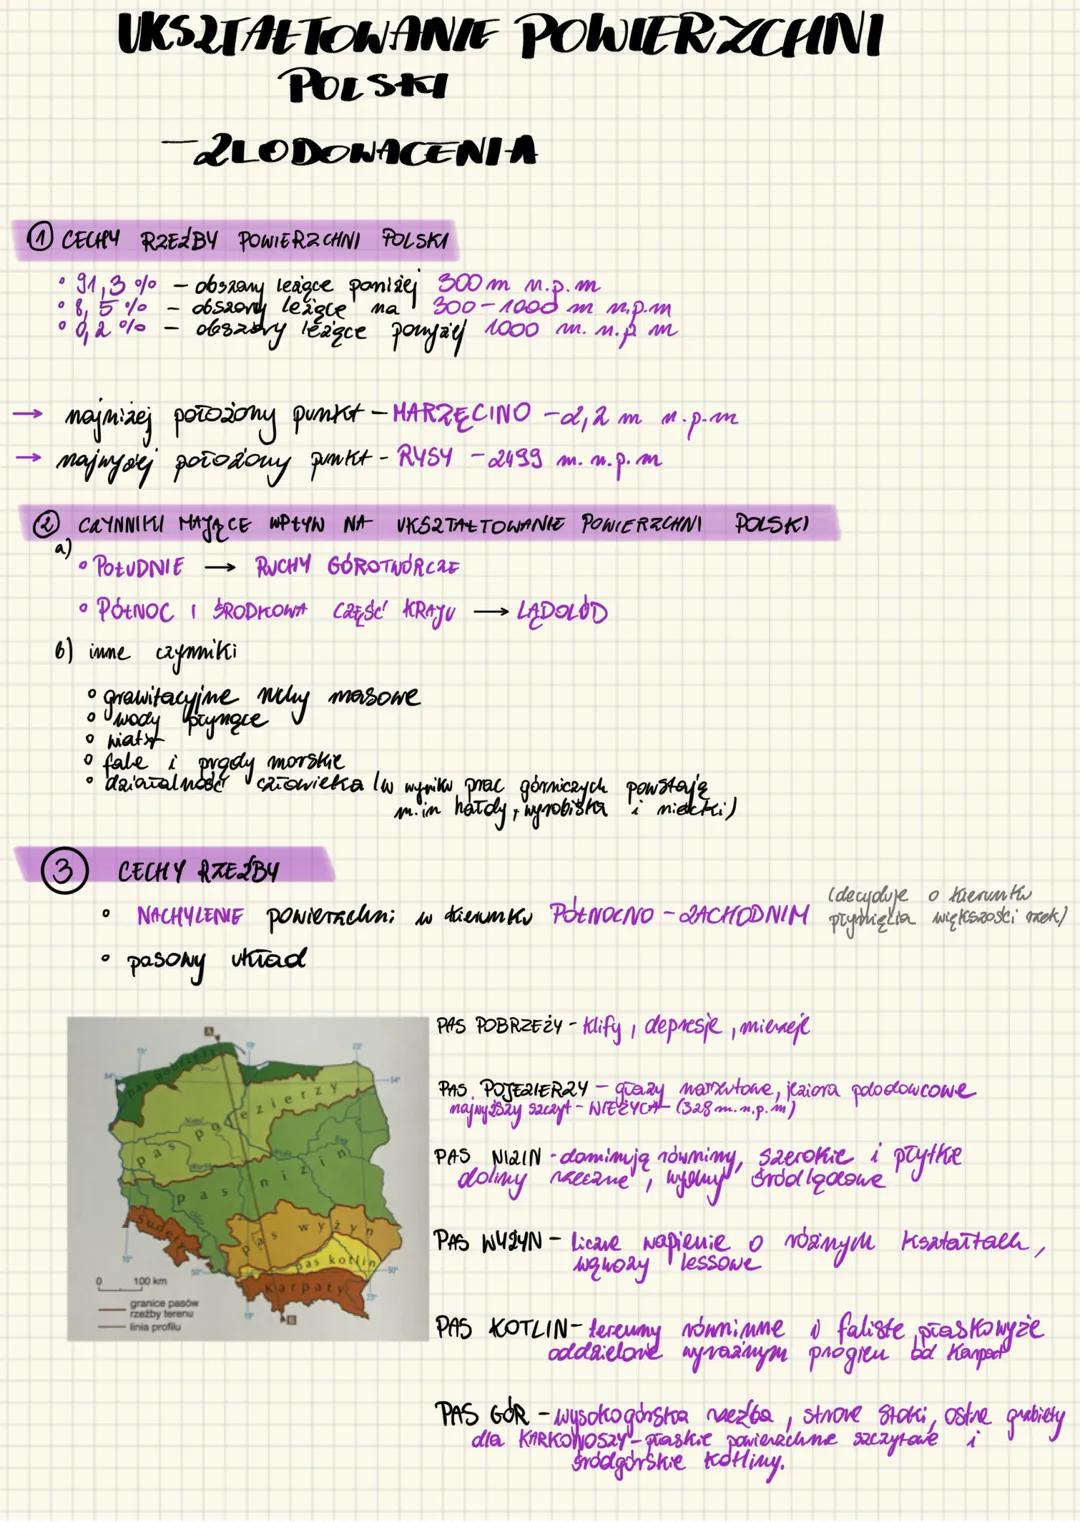 UKSZTAŁTOWANIE POWIERZCHNI
POLSKI
- ZLODOWACENIA
① CECHY RZEŹBY POWIERZCHNI POLSKI
• 91,3 % - obszary leżące poniżej 300 m n.p.m
• 8,5 % - obszary leżące na 300 - 1000 m n.p.m
• 0,2 % - obszary leżące powyżej 1000 m. n.p m
→ najniżej położony punkt - MARZĘCINO - 2,2 m n.p.m
→ najwyżej położony punkt - RYSY - 2499 m. n.p.m
② CZYNNIKI MAJĄCE WPŁYW NA UKSZTAŁTOWANIE POWIERZCHNI POLSKI
a)
• POŁUDNIE → RUCHY GÓROTWÓRCZE
• PÓŁNOC I ŚRODKOWA CZĘŚĆ KRAJU → LĄDOLÓD
b) inne czynniki
• grawitacyjne ruchy masowe
• wody płynące
• wiatr
• fale i prądy morskie
• działalność człowieka (w wyniku prac górniczych powstają
m.in hałdy, wyrobiska i niecki)
③ CECHY RZEŹBY
• NACHYLENIE powierzchni w kierunku PÓŁNOCNO - ZACHODNIM (decyduje o kierunku
płynięcia większości rzek)
• pasowy układ
PAS POBRZEŻY - klify, depresje, mierzeje
PAS POJEZIERZY - głazy narzutowe, jeziora polodowcowe
najwyższy szczyt - WIEŻYCA (328 m.n.p.m)
PAS NIZIN - dominują równiny, szerokie i płytkie
doliny rzeczne, wydmy śródlądowe
PAS WYŻYN - liczne wapienie o różnym kształtach,
wąwozy lessowe
PAS KOTLIN - tereny równinne i faliste, płaskowyże
oddzielone wyraźnym progiem od Karpat
PAS GÓR - wysokogórska rzeźba, strome stoki, ostre grabiety
dla KARKONOSZY - płaskie powierzchnie szczytowe i
śródgórskie kotliny.
A
pas pobrzeży
pas pojezierzy
pas nizin
Sudety
pas wyżyn
pas kotlin
Karpaty
B
0 100 km
granice pasów
rzeźby terenu
linia profilu